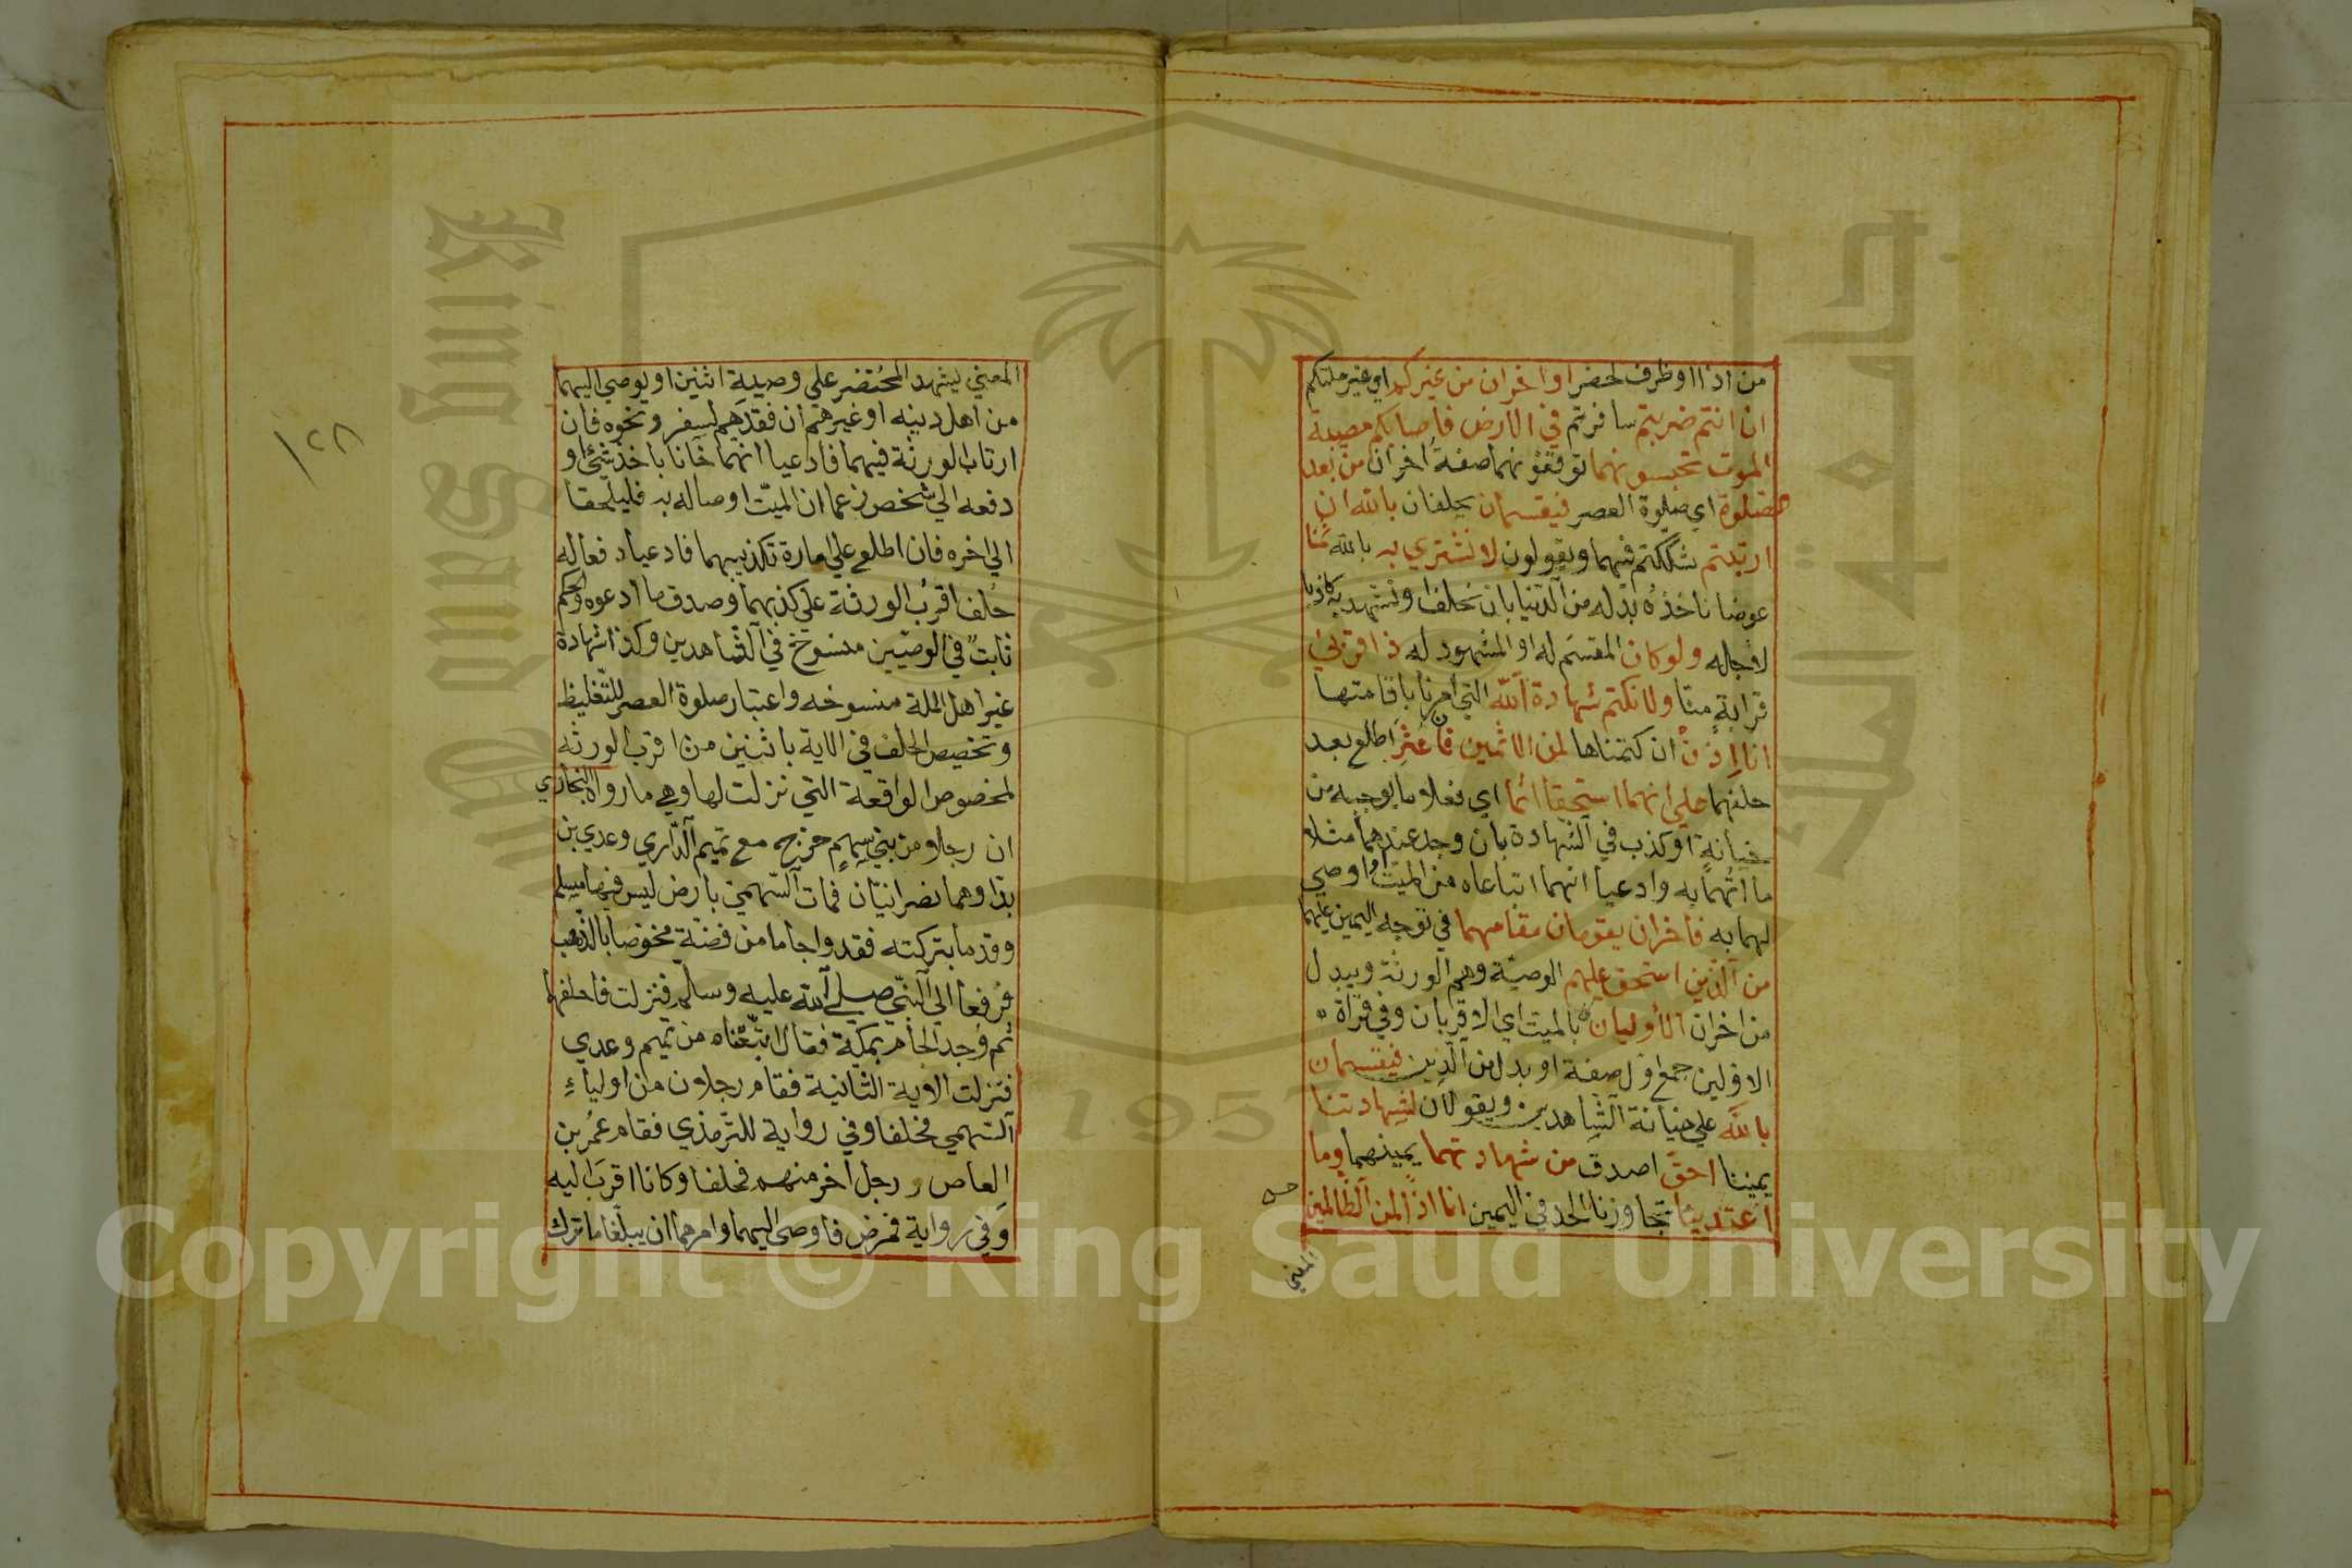 من اذا او ظرف لحضر او اخران من غيركم اي غير ملتكم
ان انتم ضربتم سافرتم في الارض فاصابكم مصيبة
الموت تحبسونهما توقفونهما صفة اخران من بعد
الصلوة اي صلوة العصر فيقسمان يحلفان بالله ان
ارتبتم شككتم فيهما ويقولون لا نشتري به بالله ثمنا
عوضا ناخذه بدله من الدنيا بان نحلف او نشهد به كاذبا
لاجله ولو كان المقسم له او المشهود له ذا قربى
قرابة منا ولا نكتم شهادة الله التي امرنا باقامتها
انا اذا ان كتمناها لمن الاثمين فان عثر اطلع بعد
حلفهما على انهما استحقا اثما اي فعلا ما يوجبه من
خيانة او كذب في الشهادة بان وجد عندهما مثلا
ما اتهما به وادعيا انهما ابتاعاه من الميت او اوصى
لهما به فاخران يقومان مقامهما في توجه اليمين عليهما
من الذين استحق عليهم الوصية وهم الورثة ويبدل
من اخران الأوليان بالميت اي الاقربان وفي قراة
الاولين جمع اول صفة او بدل من الذين فيقسمان
بالله على خيانة الشاهدين ويقولان لشهادتنا
يميننا احق اصدق من شهادتهما يمينهما وما
اعتدينا تجاوزنا الحد في اليمين انا اذا لمن الظالمين
المعني
١٢٨
المعني ليشهد المحتضر على وصيية اثنين او يوصي اليهما
من اهل دينه او غيرهم ان فقدهم لسفر ونحوه فان
ارتاب الورثة فيهما فادعيا انهما خانا باخذ شئ او
دفعه الي شخص زعما ان الميت اوصا له به فليحلفا
الي اخره فان اطلع علي امارة تكذيبهما فادعيا دفعا له
حلف اقرب الورثة علي كذبهما وصدق ما ادعوه والحكم
ثابت في الوصيين منسوخ في الشاهدين وكذا شهادة
غير اهل الملة منسوخه واعتبار صلوة العصر للتغليظ
وتخصيص الحلف في الاية باثنين من اقرب الورثه
لخصوص الواقعة التي نزلت لها وهي ما رواه البخاري
ان رجلا من بني سهم خرج مع تميم الداري وعدي بن
بدا وهما نصرانيان فمات السهمي بارض ليس فيها مسلم
وقدما بتركته فقدوا جاما من فضة مخوصا بالذهب
فرفعا الي النبي صلى الله عليه وسلم فنزلت فاحلفهما
ثم وجد الجام بمكة فقال ابتعناه من تميم وعدي
فنزلت الاية الثانية فقام رجلان من اولياء
السهمي فحلفا وفي رواية للترمذي فقام عمر بن
العاص ورجل اخر منهم فحلفا وكانا اقرب اليه
وفي رواية فمرض فاوصى اليهما وامرهما ان يبلغا ما ترك
King Saud University
جامعة الملك
1957
Copyright © King Saud University